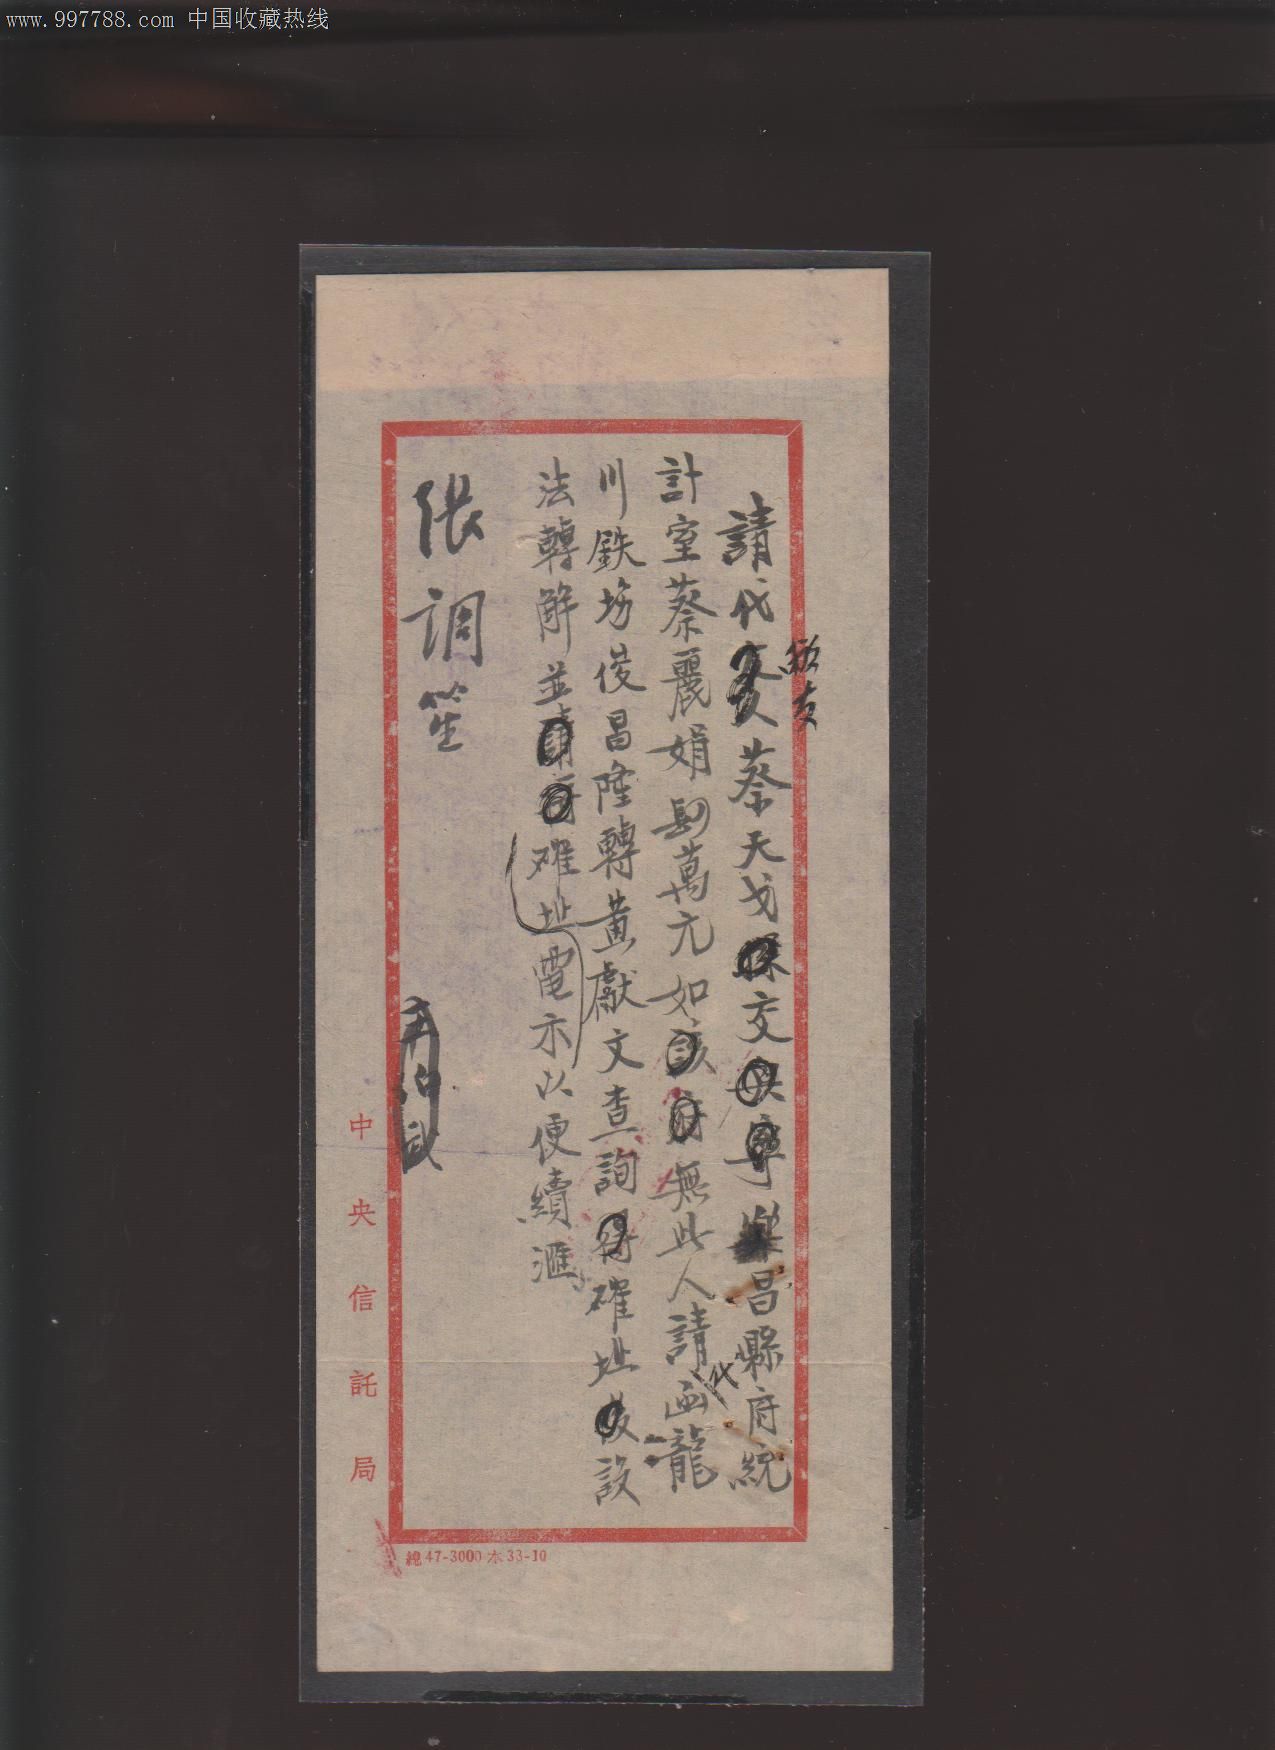 www.997788.com 中国收藏热线
請代蔡天戈交樂昌縣府統
計室蔡麗娟萬元如無此人請代函龍
川鉄塲俊昌隆轉黃獻文查詢確址設
法轉解並確址電示以便續滙
張調笙
中央信託局
總47-3000本33-10